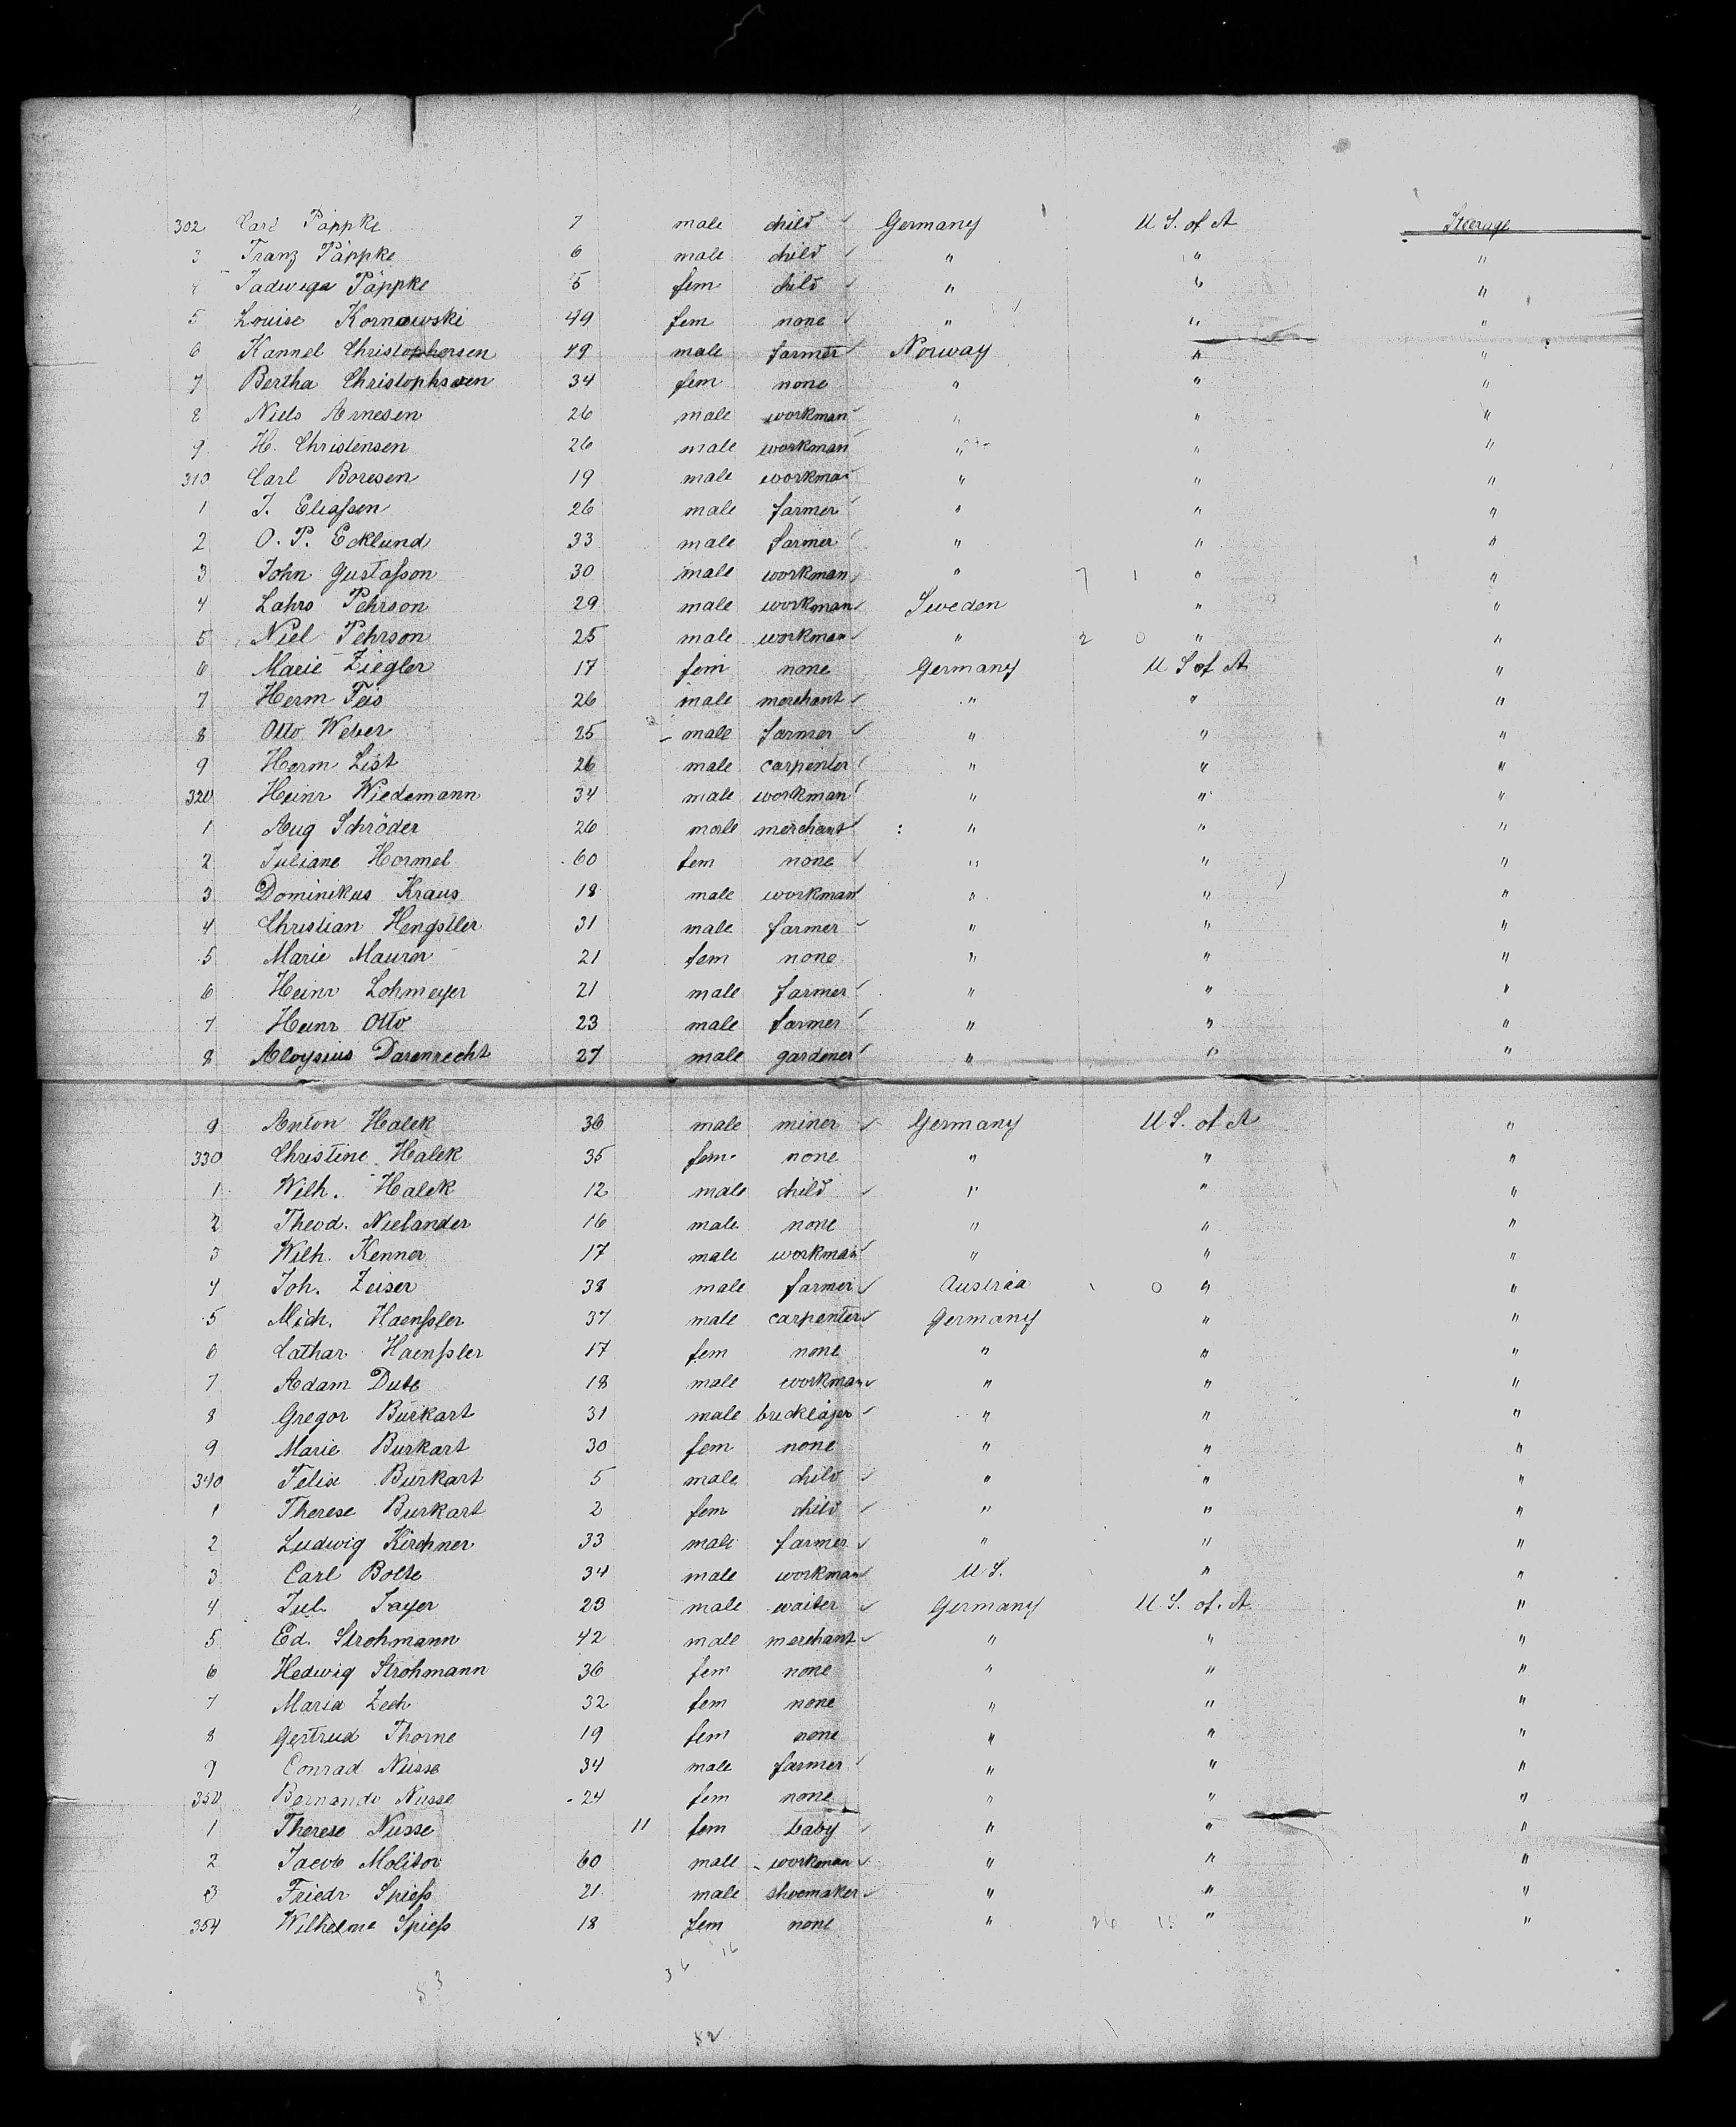 302 Carl Päppke 7 male child Germany U S. of A Steerage
3 Franz Päppke 6 male child " " "
4 Jadwiga Päppke 5 fem child " " "
5 Louise Kornowski 49 fem none " " "
6 Kannel Christophersen 49 male farmer Norway " "
7 Bertha Christophersen 34 fem none " " "
8 Niels Arnesen 26 male workman " " "
9 H. Christensen 26 male workman " " "
310 Carl Boresen 19 male workman " " "
1 J. Eliaſsen 26 male farmer " " "
2 O. P. Ecklund 33 male farmer " " "
3 John Gustafson 30 male workman " 7 1 " "
4 Lahrs Pehrson 29 male workman Sweden " "
5 Niel Pehrson 25 male workman " 2 0 " "
6 Marie Ziegler 17 fem none Germany U S of A "
7 Herm Feis 26 male merchant " " "
8 Otto Weber 25 male farmer " " "
9 Herm List 26 male carpenter " " "
320 Heinr Wiedemann 34 male workman " " "
1 Aug Schröder 26 male merchant " " "
2 Juliane Hormel 60 fem none " " "
3 Dominikus Kraus 18 male workman " " "
4 Christian Hengstler 31 male farmer " " "
5 Marie Maurer 21 fem none " " "
6 Heinr Lohmeyer 21 male farmer " " "
7 Heinr Otto 23 male farmer " " "
8 Aloysius Darenrecht 27 male gardener " " "
9 Anton Halek 36 male miner Germany U S. of A "
330 Christine Halek 35 fem. none " " "
1 Wilh. Halek 12 male child " " "
2 Theod. Nielander 16 male none " " "
3 Wilh. Kenner 17 male workman " " "
4 Joh. Zeiser 38 male farmer Austria 1 0 " "
5 Mich. Haenſsler 37 male carpenter Germany " "
6 Cathar Haenſsler 17 fem none " " "
7 Adam Dute 18 male workman " " "
8 Gregor Burkart 31 male bricklajer " " "
9 Marie Burkart 30 fem none " " "
340 Felix Burkart 5 male child " " "
1 Therese Burkart 2 fem child " " "
2 Ludwig Kirchner 33 male farmer " " "
3 Carl Bolte 34 male workman U S. " "
4 Jul. Jayer 23 male waiter Germany U. S. of. A. "
5 Ed. Strohmann 42 male merchant " " "
6 Hedwig Strohmann 36 fem none " " "
7 Maria Zech 32 fem none " " "
8 Gertrud Thorne 19 fem none " " "
9 Conrad Nüsse 34 male farmer " " "
350 Bernande Nusse 24 fem none " " "
1 Therese Nüsse 11 fem baby " " "
2 Jacob Molitor 60 male workman " " "
3 Friedr Spieſs 21 male shoemaker " " "
354 Wilhelme Spieſs 18 fem none " 26 15 " "
36 16
53
52